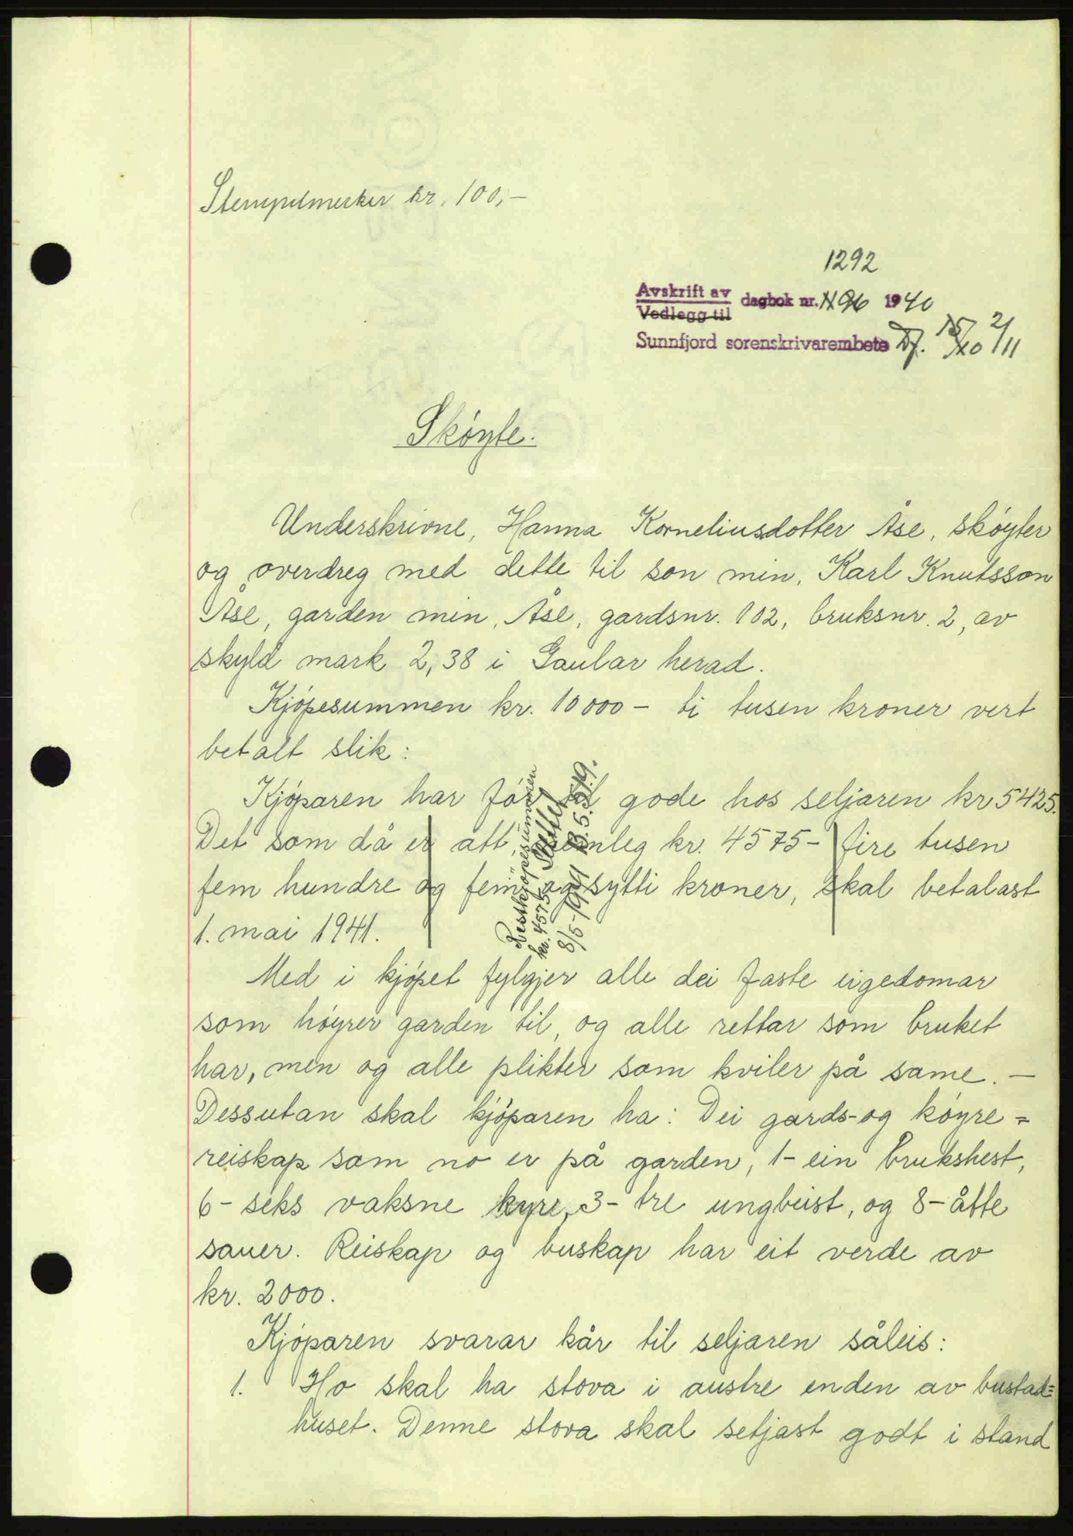 Stempelmerker kr. 100,-
1292
Avskrift av
Vedlegg til
dagbok nr. 1196 1940
Sunnfjord sorenskrivarembete Df. 15/10 2/11
Skøyte.
Underskrivne, Hanna Korneliusdotter Åse, skøyter
og overdreg med dette til son min, Karl Knutsson
Åse, garden min, Åse, gardsnr. 102, bruksnr. 2, av
skyld mark 2,38 i Gaular herad.
Kjøpesummen kr. 10000 - ti tusen kroner vert
betalt slik:
Kjøparen har før til gode hos seljaren kr 5425.
Det som då er att, nemleg kr. 4575 - fire tusen
fem hundre og fem og sytti kroner, skal betalast
1. mai 1941.
Restkjøpesummen
kr. 4575,- slettet
8/5-1941 13.5.519.
Med i kjøpet fylgjer alle dei faste eigedomar
som høyrer garden til, og alle rettar som bruket
har, men og alle plikter som kviler på same. -
Dessutan skal kjøparen ha: Dei gards- og køyre=
reiskap som no er på garden, 1- ein brukshest,
6- seks vaksne kyre, 3- tre ungbeist, og 8- åtte
sauer. Reiskap og buskap har eit verde av
kr. 2000.
Kjøparen svarar kår til seljaren såleis:
1. Ho skal ha stova i austre enden av bustad=
huset. Denne stova skal setjast godt i stand